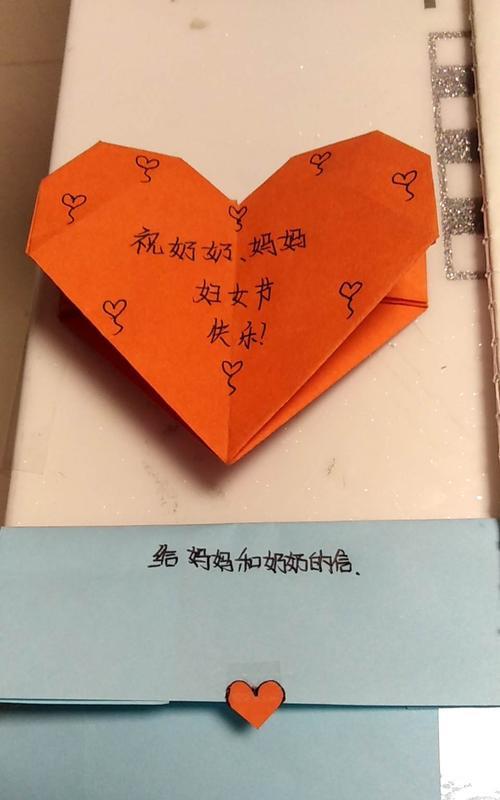 祝奶奶、妈妈
妇女节
快乐!
给妈妈和奶奶的信.